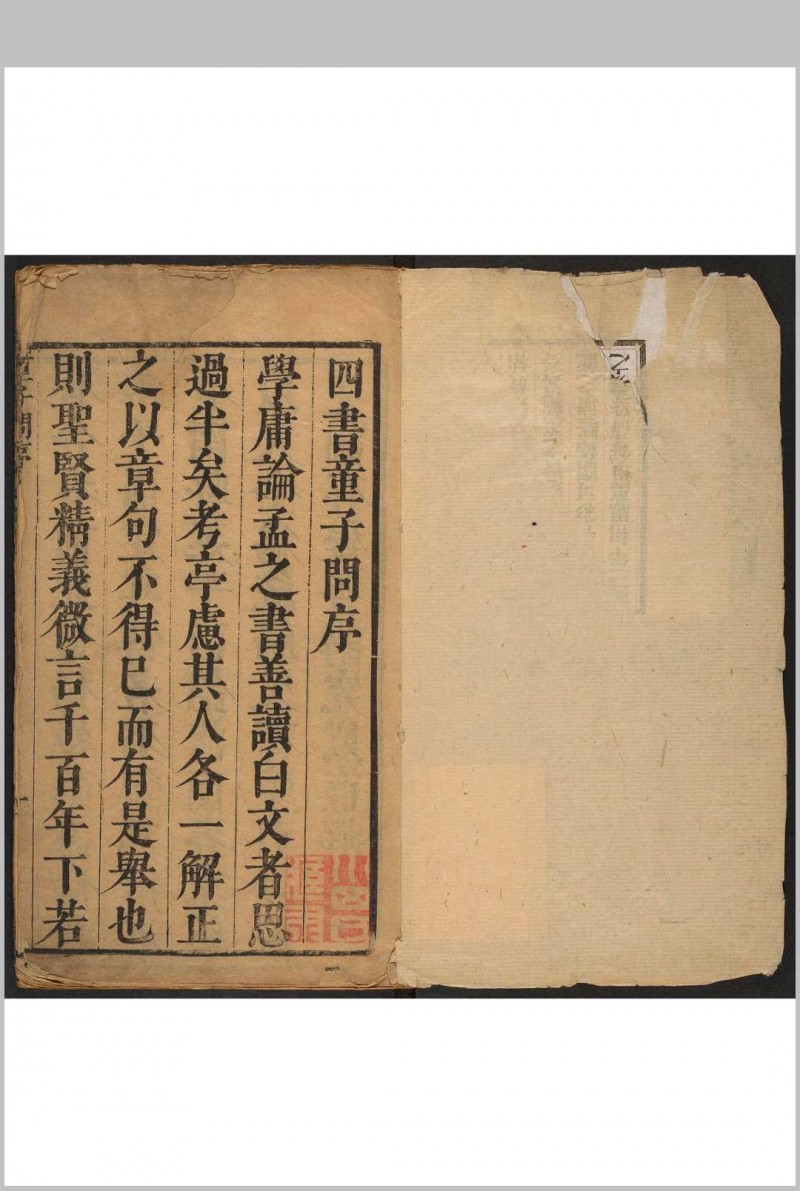 四書童子問序
學庸論孟之書善讀白文者思
過半矣考亭慮其人各一解正
之以章句不得已而有是舉也
則聖賢精義微言千百年下若
童子問序